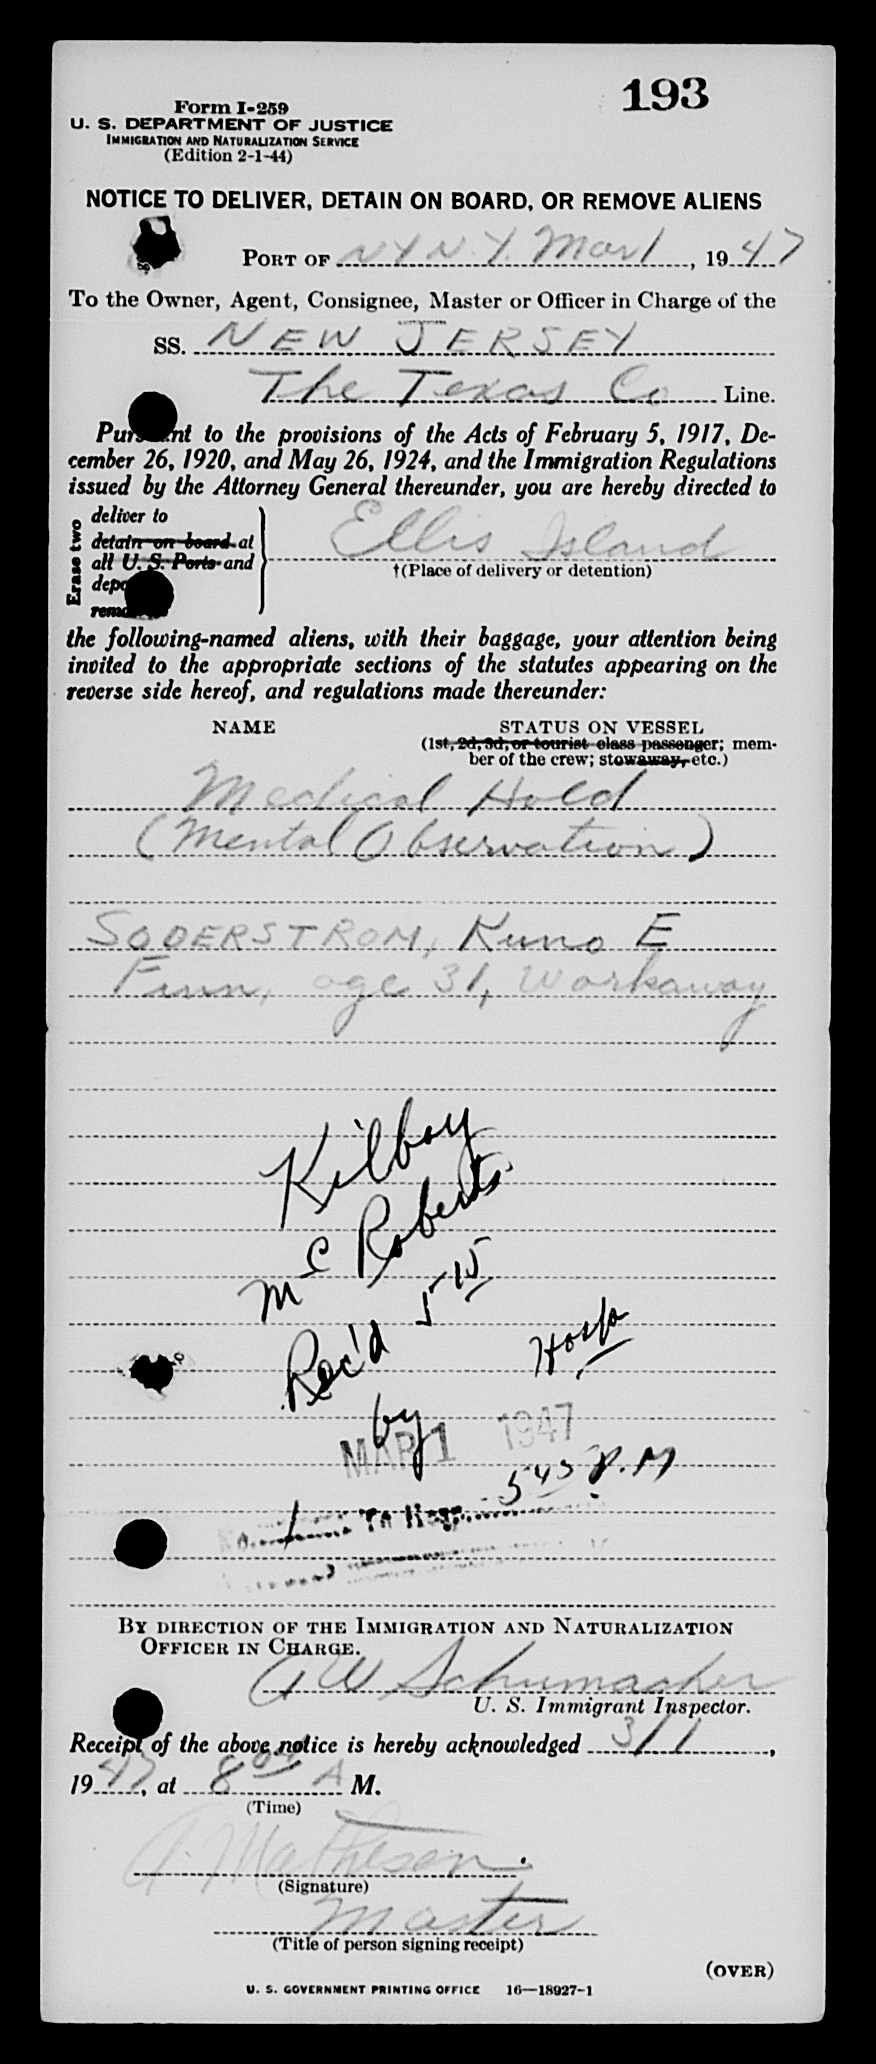 193
Form I-259
U. S. DEPARTMENT OF JUSTICE
IMMIGRATION AND NATURALIZATION SERVICE
(Edition 2-1-44)
NOTICE TO DELIVER, DETAIN ON BOARD, OR REMOVE ALIENS
PORT OF N Y N. Y. Mar 1, 1947
To the Owner, Agent, Consignee, Master or Officer in Charge of the
SS. NEW JERSEY
The Texas Co Line.
Pursuant to the provisions of the Acts of February 5, 1917, De-
cember 26, 1920, and May 26, 1924, and the Immigration Regulations
issued by the Attorney General thereunder, you are hereby directed to
Erase two
deliver to
detain on board at
all U. S. Ports and
Ellis Island
†(Place of delivery or detention)
the following-named aliens, with their baggage, your attention being
invited to the appropriate sections of the statutes appearing on the
reverse side hereof, and regulations made thereunder:
NAME STATUS ON VESSEL
(1st, 2d, 3d, or tourist class passenger; mem-
ber of the crew; stowaway, etc.)
Medical Hold
(Mental Observation)
SODERSTROM, Kuno E
Finn, age 31, Workaway
Kilboy
Mc Roberts
Rec'd 5 15
Hosp
by
MAR 1 1947
5 45 P.M
1
BY DIRECTION OF THE IMMIGRATION AND NATURALIZATION
OFFICER IN CHARGE.
A W Schumacher
U. S. Immigrant Inspector.
Receipt of the above notice is hereby acknowledged 3/1,
1947, at 8 00 A M.
(Time)
A. Matheson.
(Signature)
Master
(Title of person signing receipt)
(OVER)
U. S. GOVERNMENT PRINTING OFFICE 16—18927-1